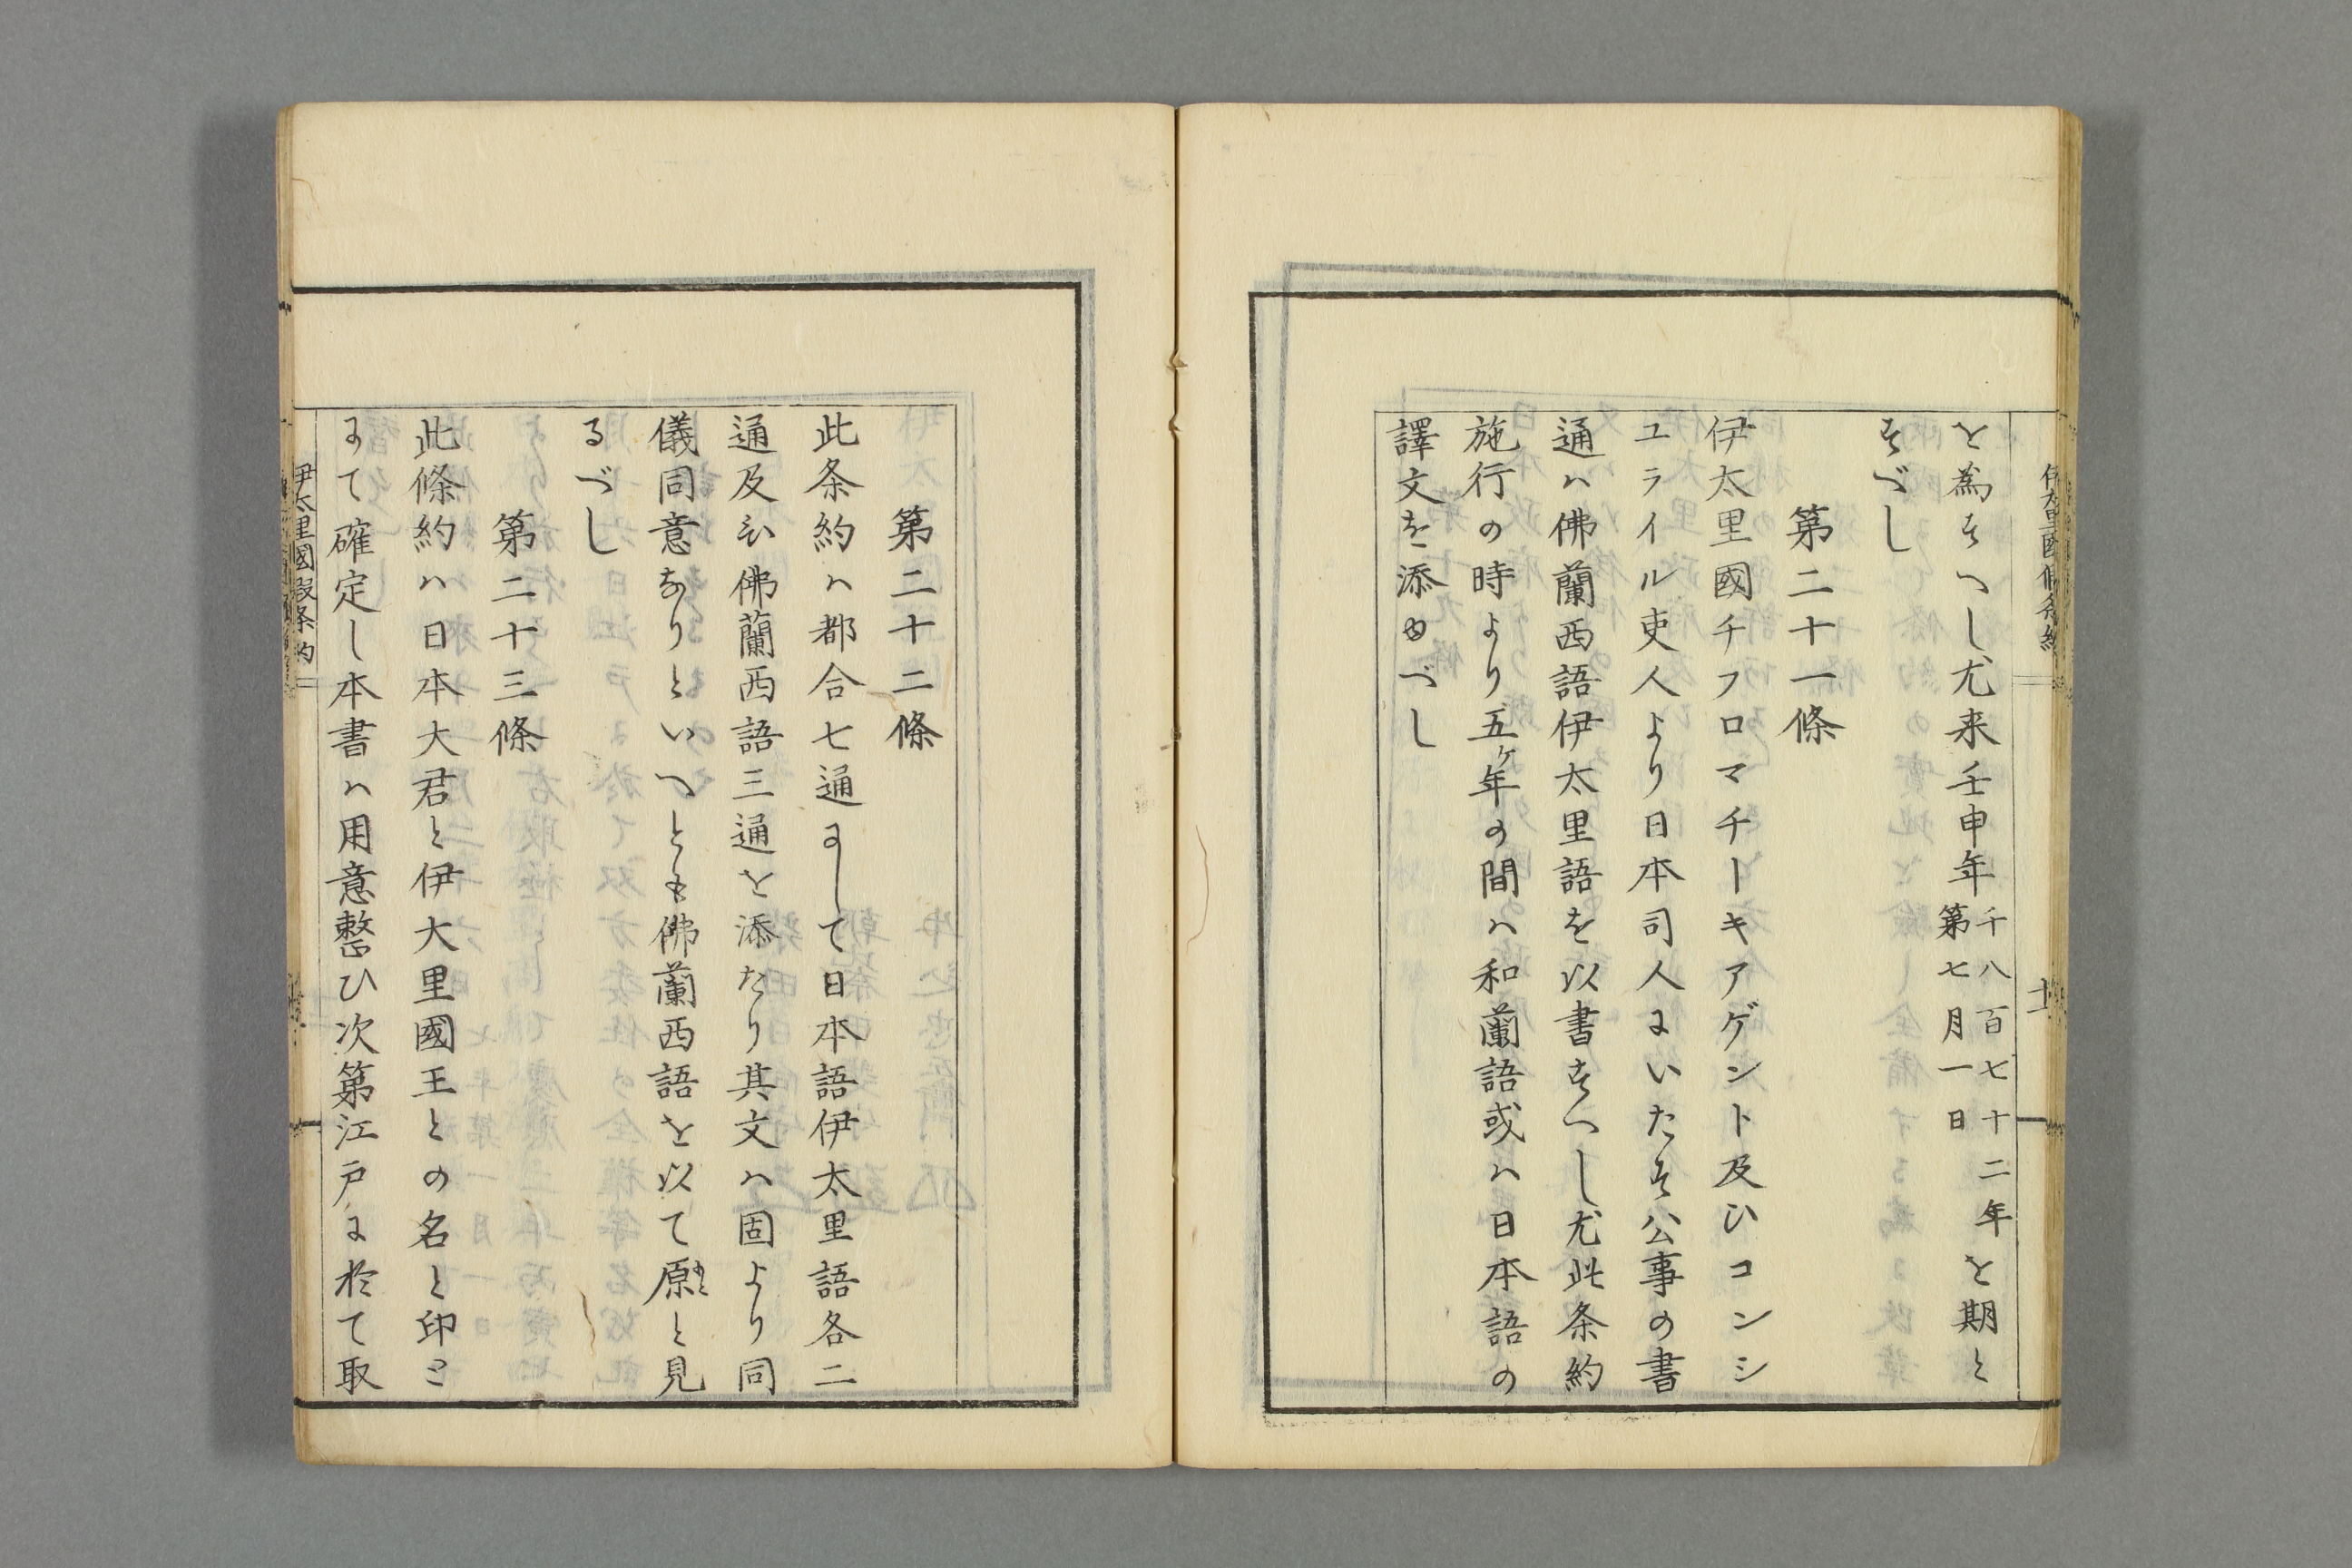 を為すへし尤来壬申年千八百七十二年第七月一日を期と
すべし
第二十一條
伊太里國チフロマチーキアゲント及ひコンシ
ユライル吏人より日本司人にいたす公事の書
通ハ佛蘭西語伊太里語を以書すへし尤此条約
施行の時より五ケ年の間ハ和蘭語或ハ日本語の
譯文を添ゆべし
第二十二條
此条約ハ都合七通にして日本語伊太里語各二
通及ひ佛蘭西語三通を添たり其文ハ固より同
儀同意なりといへとも佛蘭西語を以て原と見
るべし
第二十三條
此條約ハ日本大君と伊大里國王との名と印と
にて確定し本書ハ用意整ひ次第江戸に於て取
伊太里國假条約